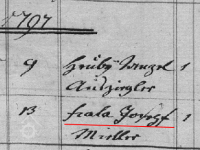 1797
9 Hruby Wenzel 1
Ausziegler
13 Fiala Joseph 1
Müller